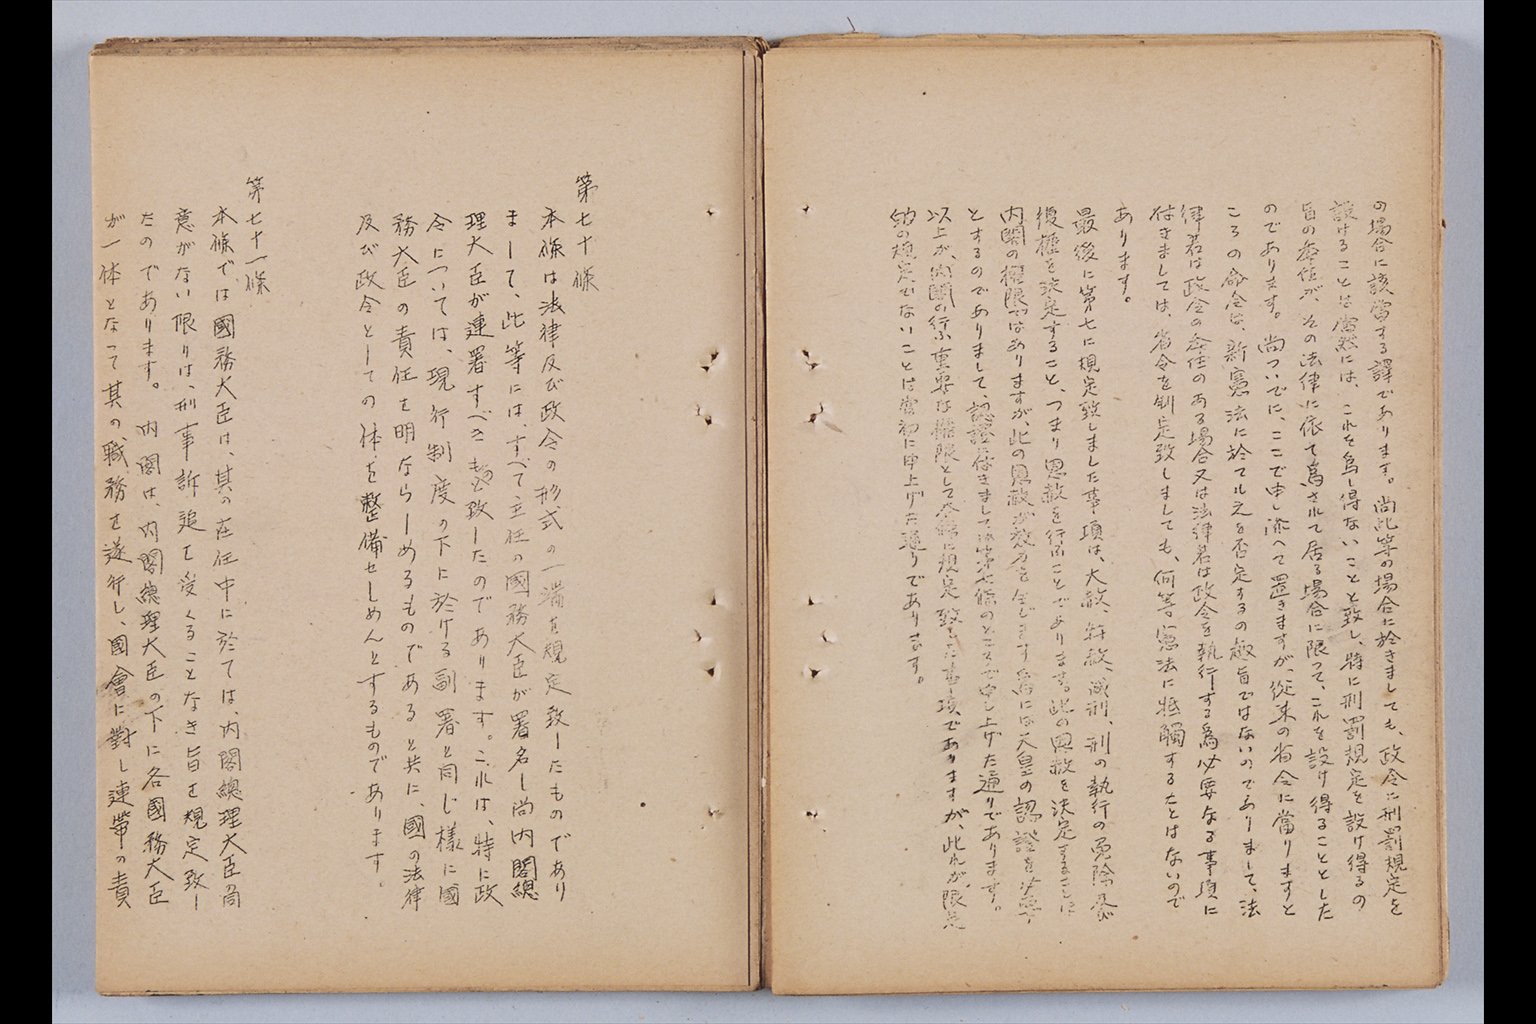 の場合に該當する譯であります。尚此等の場合に於きましても、政令に刑罰規定を
設けることは當然には、これを爲し得ないことと致し、特に刑罰規定を設け得るの
旨の委任が、その法律に依て爲されて居る場合に限って、これを設け得ることとした
のであります。尚ついでに、ここで申し添へて置きますが、従来の省令に當りますと
ころの命令は、新憲法に於て之を否定するの趣旨ではないのでありまして、法
律若は政令の委任のある場合又は法律若は政令を執行する爲必要なる事項に
付きましては、省令を制定致しましても、何等憲法に牴觸することはないので
あります。
最後に第七に規定致しました事項は、大赦、特赦、減刑、刑の執行の免除及び
復權を決定すること、つまり恩赦を行ふことであります。此の恩赦を決定することは
内閣の權限ではありますが、此の恩赦が效力を生じます爲には天皇の認證を必要
とするのでありまして、認證に付きましては第七條のところで申し上げた通りであります。
以上が、内閣の行ふ重要な權限として本條に規定致した事項でありますが、此れが、限定
的の規定でないことは當初に申上げた通りであります。
第七十條
本條は法律及び政令の形式の一端を規定致したものであり
まして、此等には、すべて主任の國務大臣が署名し尚内閣總
理大臣が連署すべきものと致したのであります。これは、特に政
令については、現行制度の下に於ける副署と同じ様に國
務大臣の責任を明ならしめるものであると共に、國の法律
及び政令としての体を整備せしめんとするものであります。
第七十一條
本條では國務大臣は、其の在任中に於ては、内閣總理大臣の同
意がない限りは、刑事訴追を受くることなき旨を規定致し
たのであります。内閣は、内閣總理大臣の下に各國務大臣
が一体となって其の職務を遂行し、國會に對し連帶の責